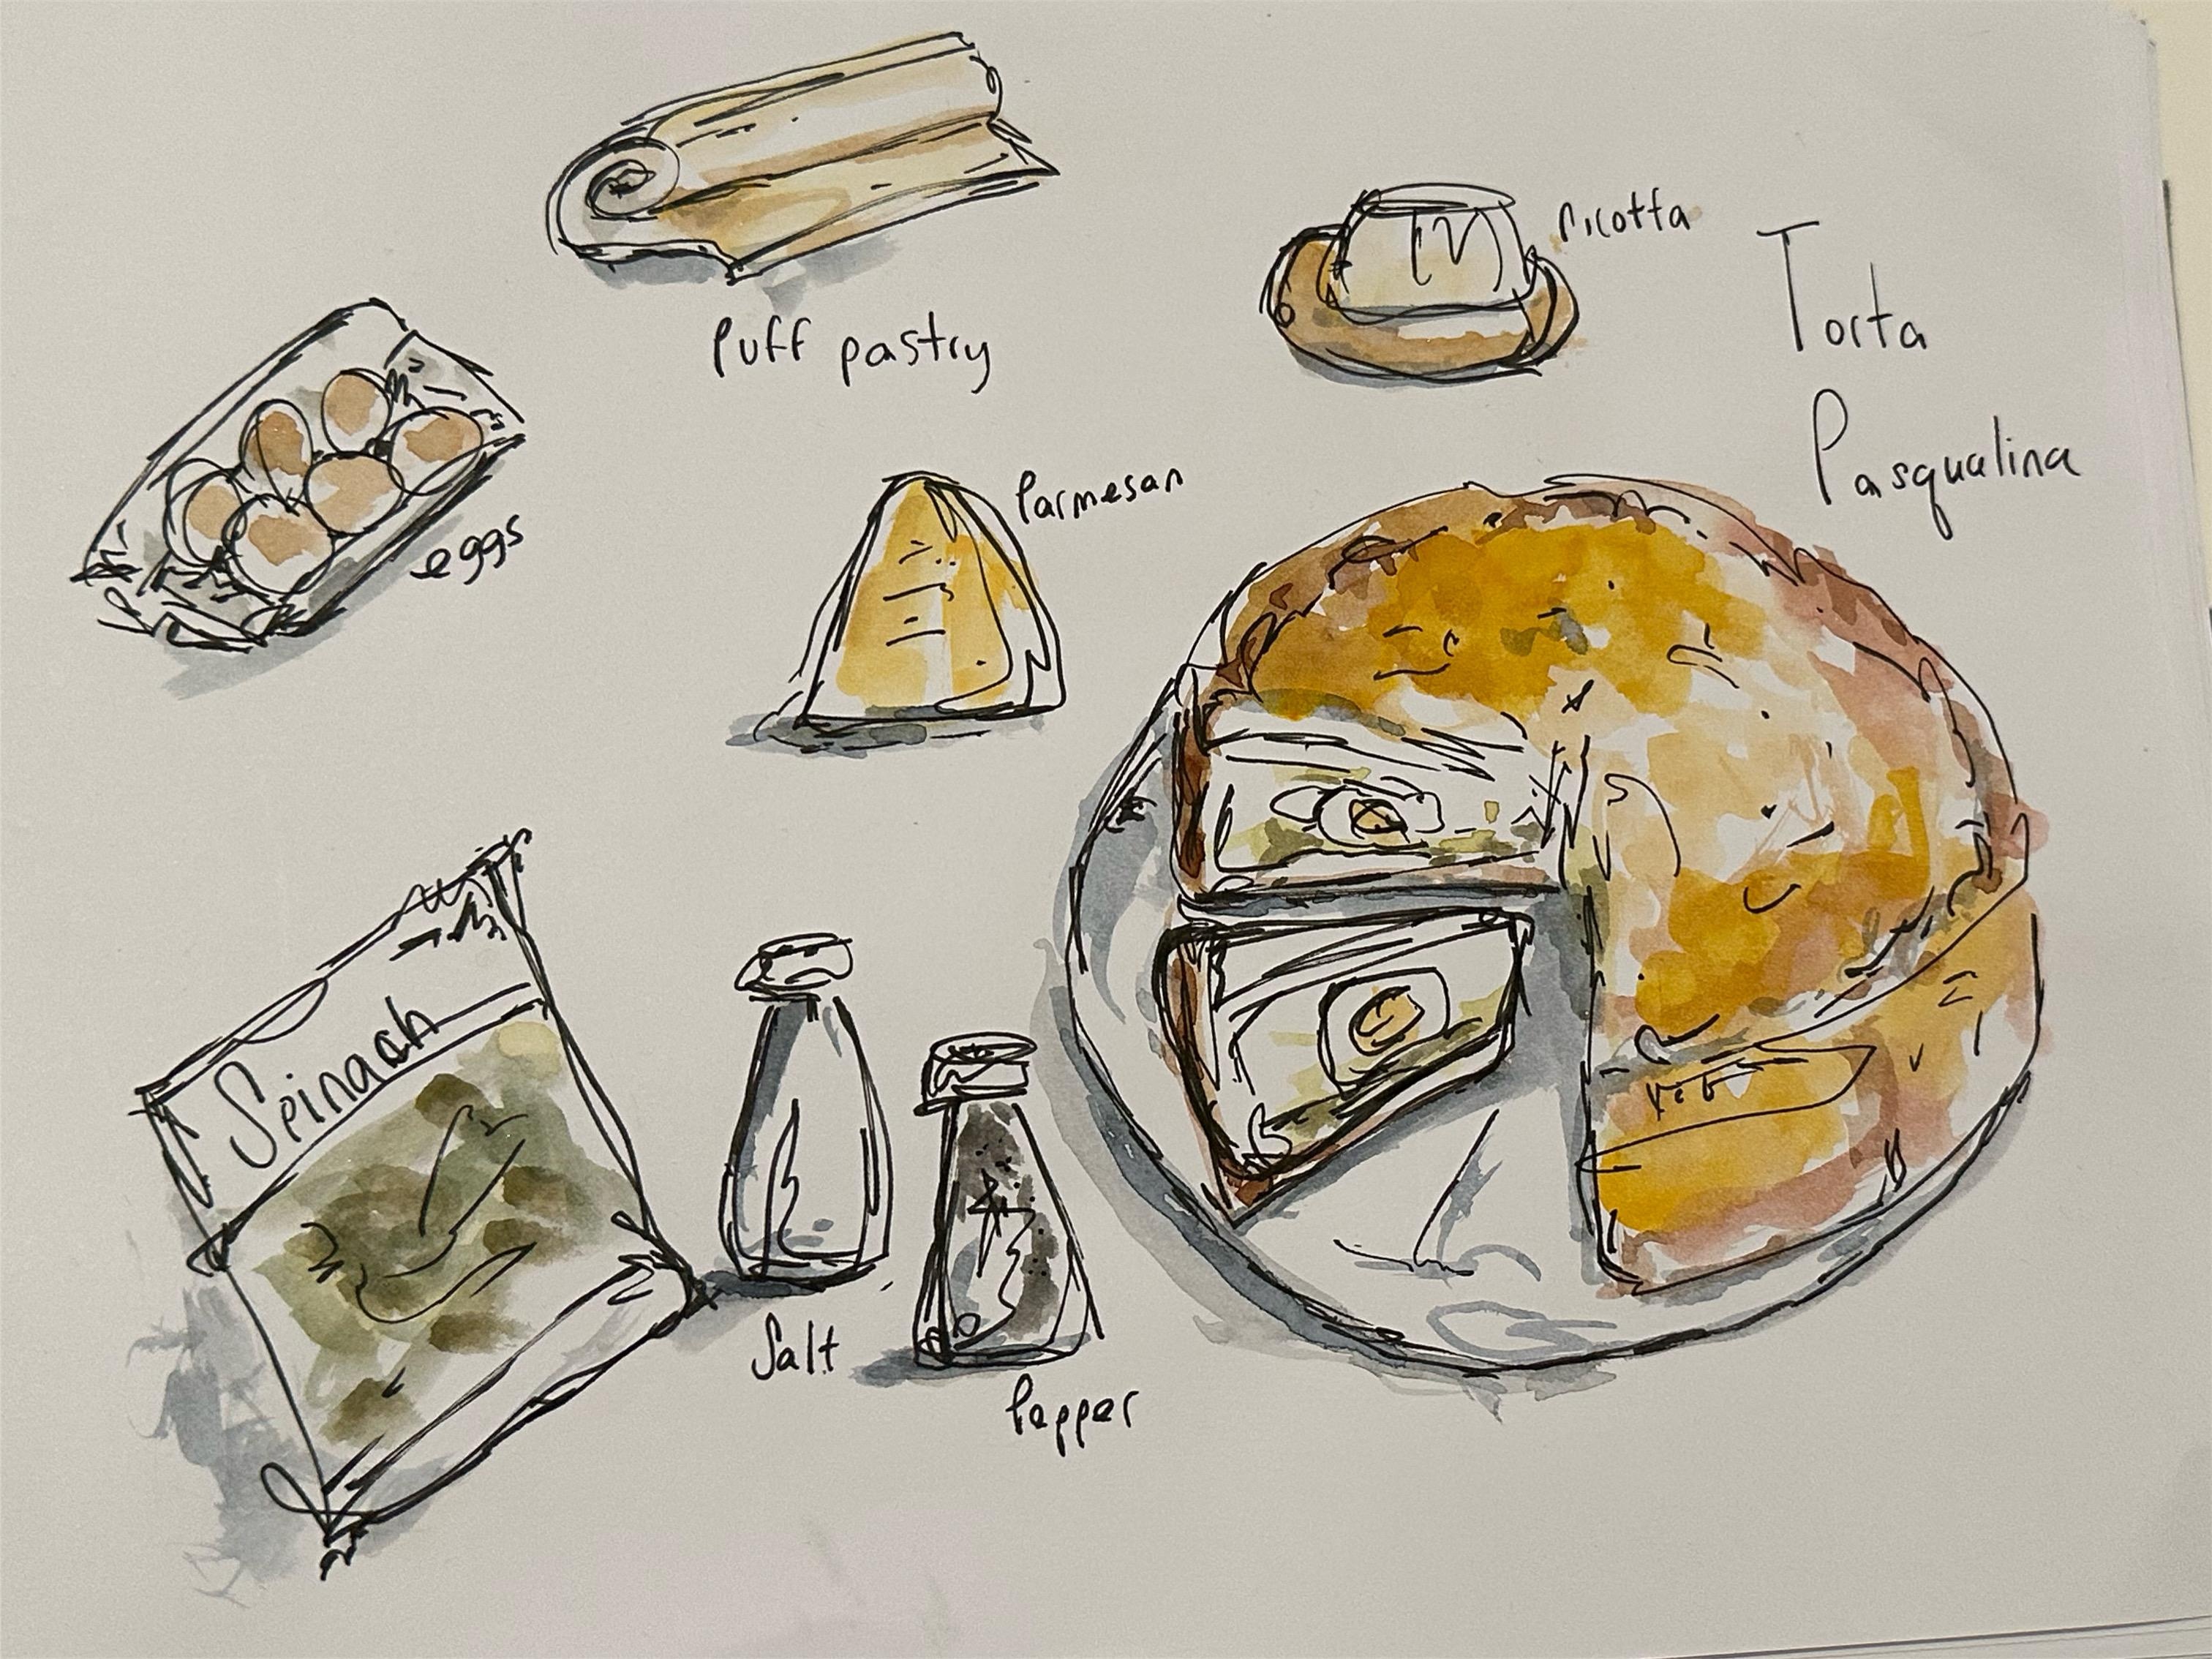 Puff pastry
ricotta
Torta
Pasqualina
eggs
Parmesan
Spinach
Salt
Pepper